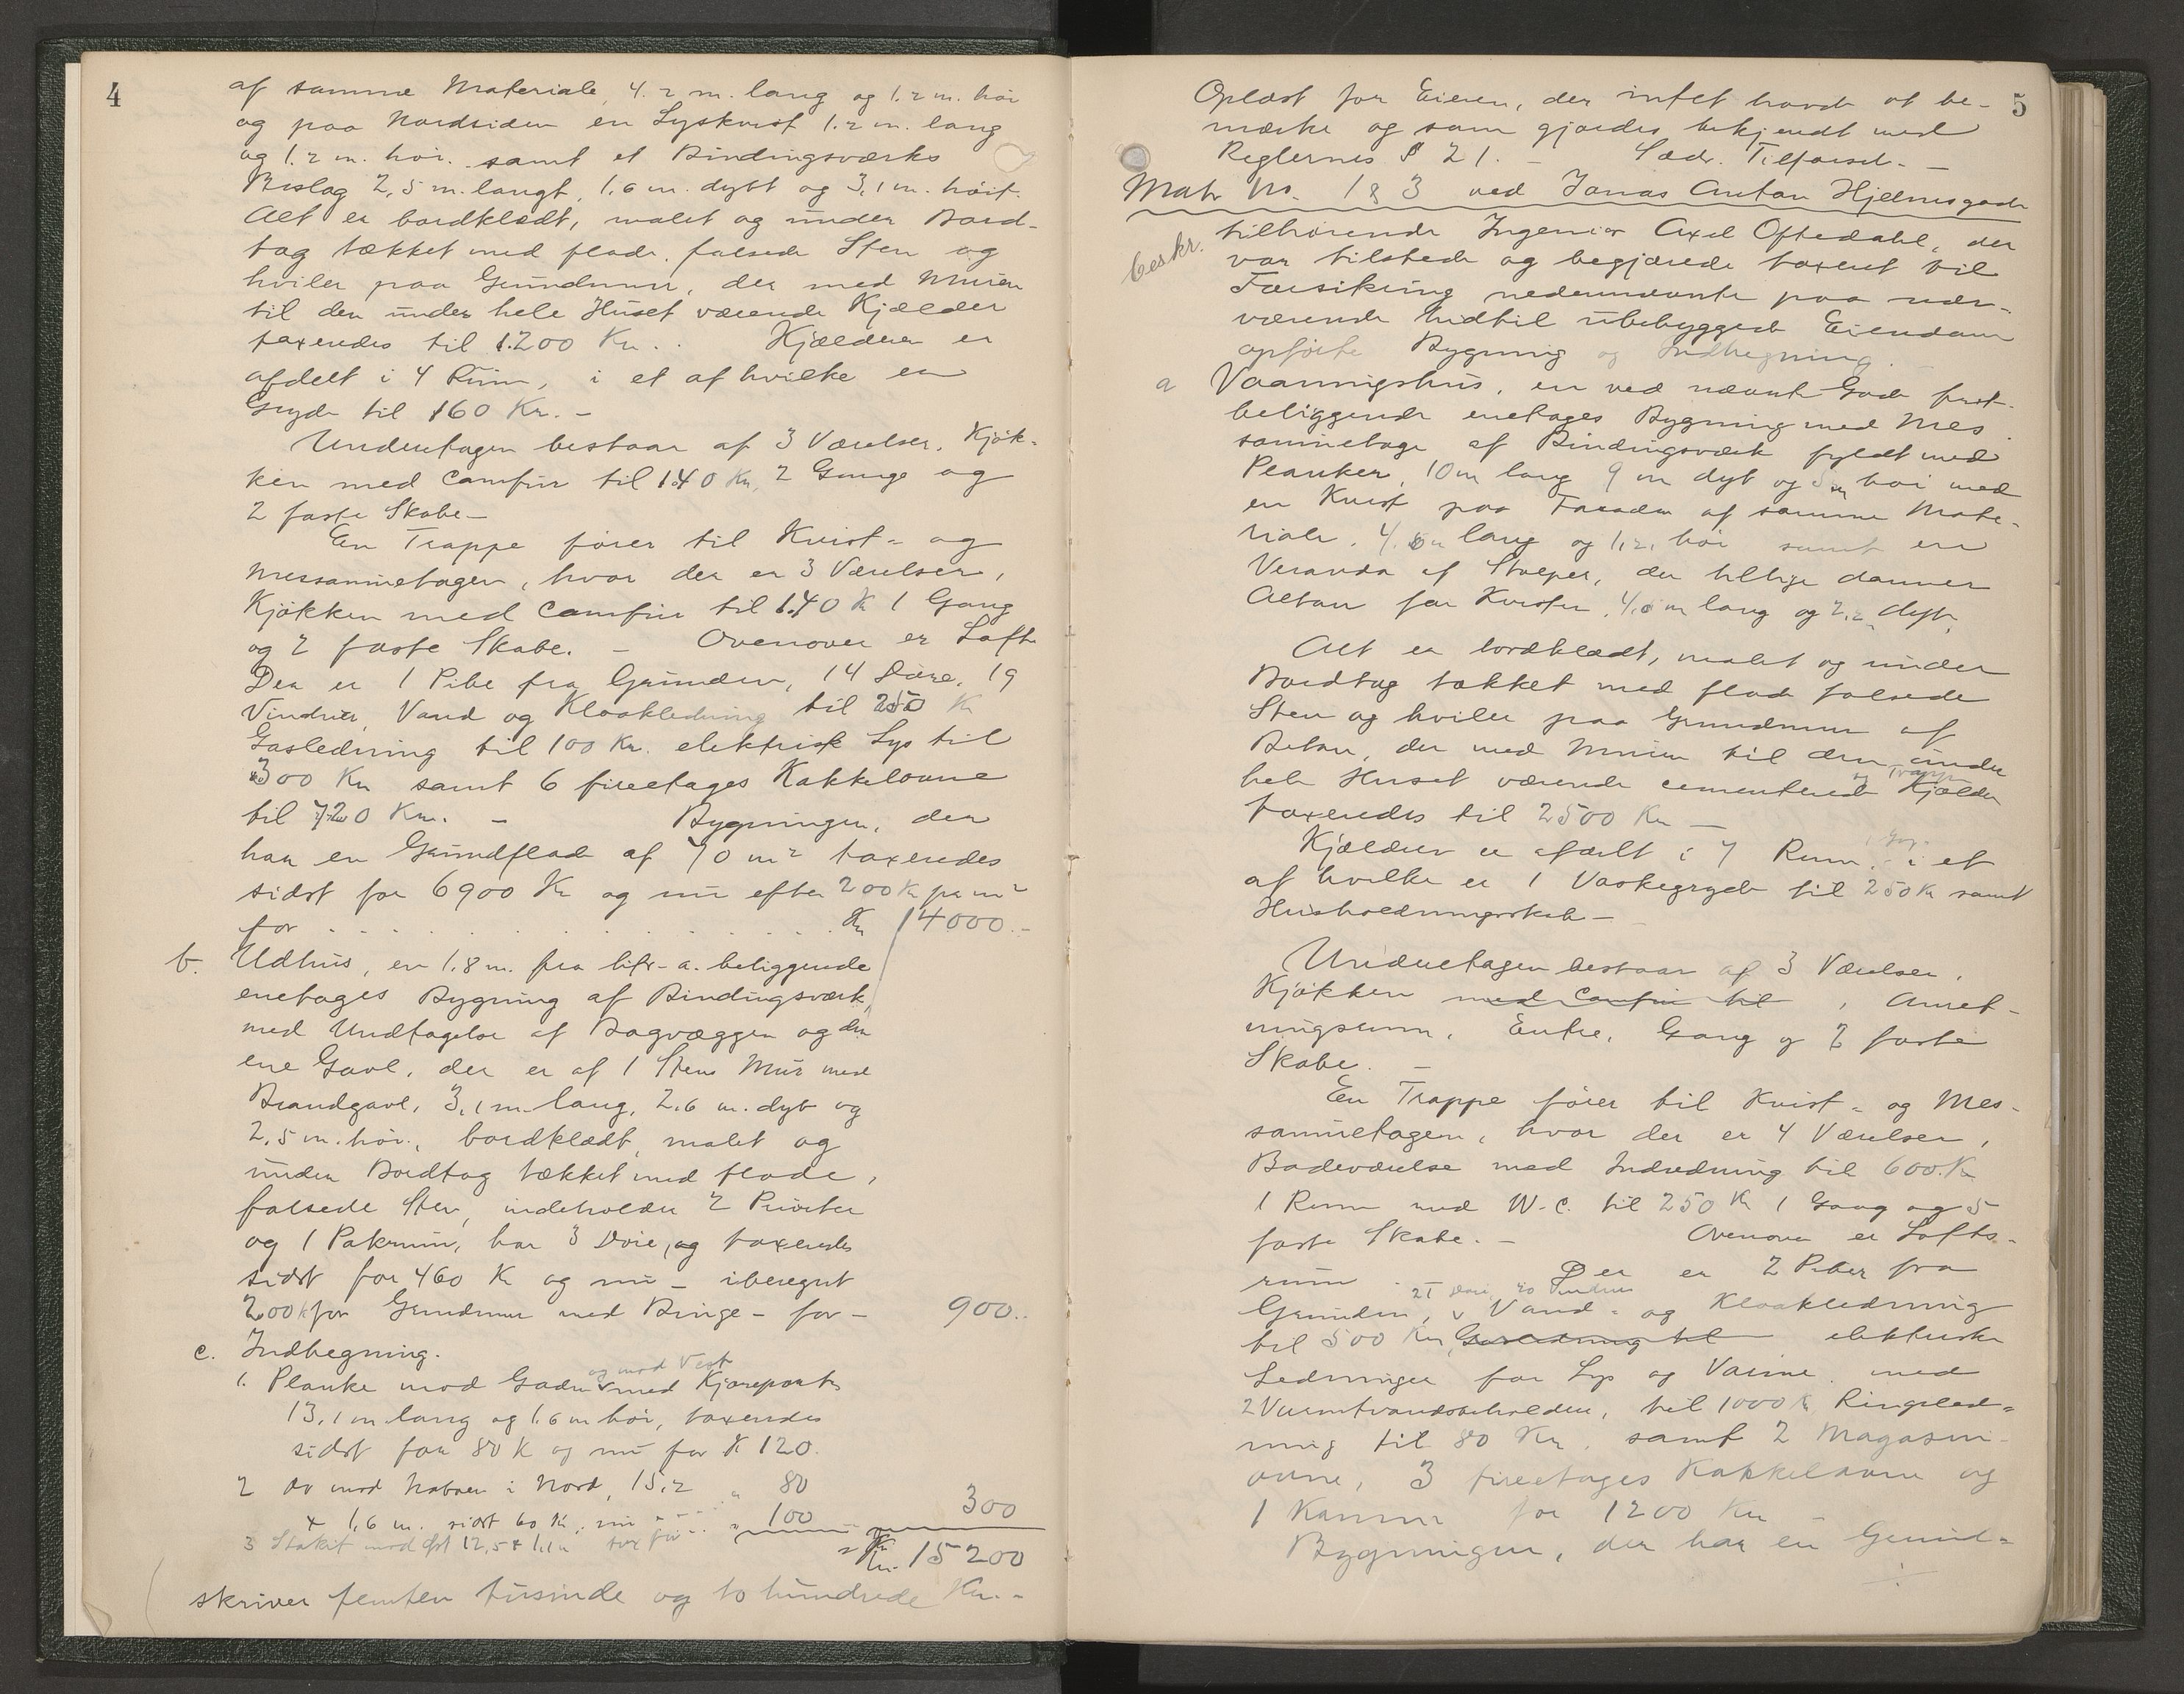 4
af samme Materiale, 4.2 m. lang og 1.2 m. høi
og paa Nordsiden en Lyskvist 1.2 m. lang
og 1.2 m. høi. samt et Bindingsværks
Bislag 2,5 m. langt, 1,6 m. dybt og 3,1 m. høit.
Alt er bordklædt, malet og under Bord-
tag tækket med flade, falsede Sten og
hviler paa Grundmur, der med Muren
til den under hele Huset værende Kjælder
taxeredes til 1.200 Kr. . Kjælderen er
afdelt i 4 Rum, i et af hvilke en
Gryde til 160 Kr. –
Underetagen bestaar af 3 Værelser, Kjøk-
ken med Comfur til 140 Kr, 2 Gange og
2 faste Skabe –
En Trappe fører til Kvist- og
Messaninetagen, hvor der er 3 Værelser,
Kjøkken med Comfur til 140 K 1 Gang
og 2 faste Skabe. – Ovenover er Loft.
Der er 1 Pibe fra Grunden, 14 Døre, 19
Vinduer, Vand og Kloakledning til 250 K
Gasledning til 100 Kr. elektrisk Lys til
300 Kr samt 6 fireetages Kakkelovne
til 720 Kr. – Bygningen, der
har en Grundflade af 70 m² taxeredes
sidst for 6900 Kr og nu efter 200 K pr m²
for . . . . . . . . . . Kr 14000.-
b. Udhus, en 1.8 m. fra litr. a. beliggende
enetages Bygning af Bindingsværk,
med Undtagelse af Bagvæggen og den
ene Gavl, der er af 1 Stens Mur med
Brandgavl, 3,1 m. lang, 2,6 m. dyb og
2,5 m. høi, bordklædt, malet og
under Bordtag tækket med flade,
falsede Sten, indeholder 2 Priveter
og 1 Pakrum, har 3 Døre, og taxeredes
sidst for 460 K og nu – iberegnet
200 K for Grundmur med Binge – for – 900..
c. Indhegning.
og mod Vest
1. Planke mod Gaden med Kjøreport
13,1 m lang og 1,6 m høi, taxeredes
sidst for 80 K og nu for K 120.
2 do mod Naboen i Nord, 15,2 " 80
x 1,6 m. sidst 60 K, nu . . . " 100 300
3 Stakit mod Øst 12,5 x 1,1 m
Kr. 15200
skriver femten tusinde og to hundrede Kr. -
5
Oplæst for Eieren, der intet havde at be-
mærke og som gjordes bekjendt med
Reglernes § 21. – Sædv. Tilførsel. –
Matr No. 183 ved Jonas Anton Hjelmsgade
beskr.
tilhørende Ingeniør Axel Oftedahl, der
var tilstede og begjærede taxeret til
Forsikring nedennævnte paa nær-
værende hidtil ubebyggede Eiendom
opførte Bygning og Indhegning.
a Vaaningshus, en ved nævnte Gade frit-
beliggende enetages Bygning med Mes
saninetage af Bindingsværk fyldt med
Planker, 10 m lang 9 m dyb og 5 m høi med
en Kvist paa Facaden af samme Mate-
riale, 4.8 m lang og 1,2, høi samt en
Veranda af Stolper, der tillige danner
Altan for Kvisten, 4,8 m lang og 2,2 dyb.
Alt er bordklædt, malet og under
Bordtag tækket med flade falsede
Sten og hviler paa Grundmur af
Beton, der med Muren til den under
hele Huset værende cementerede og Kjælder
taxeredes til 2500 Kr –
Kjælderen er afdelt i 7 Rum, i et
af hvilke er 1 Vaskegryde til 250 Kr samt
Husholdningsskab –
Underetagen bestaar af 3 Værelser,
Kjøkken med Comfur til , Anret-
ningsrum, Entre, Gang og 2 faste
Skabe. –
En Trappe fører til Kvist- og Mes-
saninetagen, hvor der er 4 Værelser,
Badeværelse med Indredning til 600. K
1 Rum med W. C. til 250 K 1 Gang og 5
faste Skabe. – Ovenover er Lofts-
rum . Der er 2 Piber fra
21 Døre, 20 Vinduer
Grunden, Vand- og Kloakledning
til 500 Kr, Gasledning til elektriske
Ledninger for Lys og Varme med
2 Varmtvandsbeholdere, til 1000 K Ringeled-
ning til 80 Kr, samt 2 Magasin-
ovne, 3 fireetages Kakkelovne og
1 Kamin for 1200 Kr
Bygningen, der har en Grund-